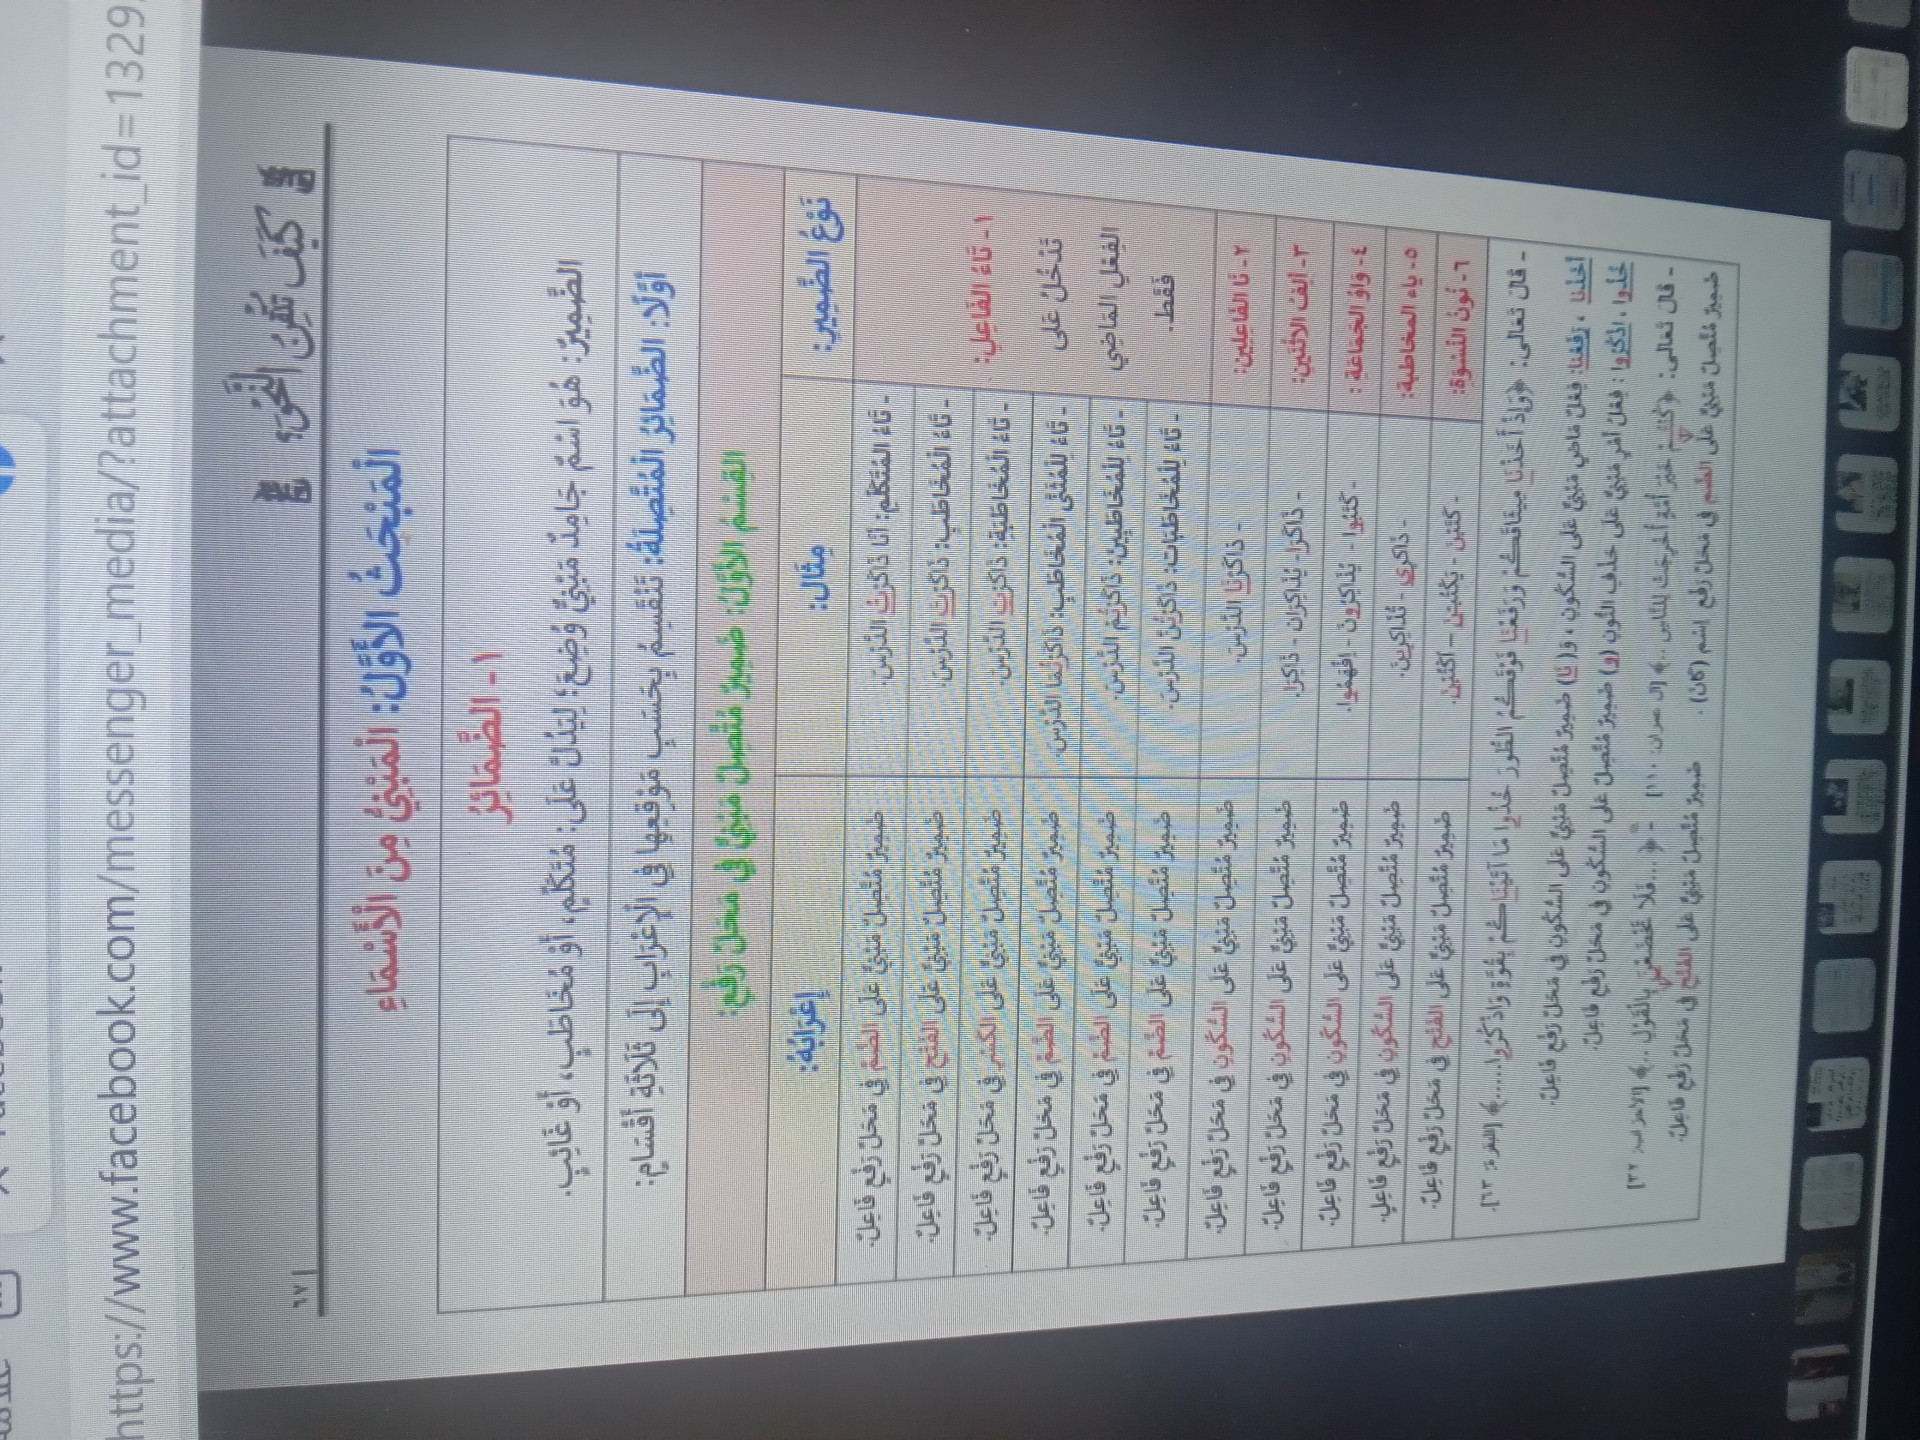 https://www.facebook.com/messenger_media/?attachment_id=1329
كَيْفَ تُتْقِنُ النَّحْوَ؟
٦٧ |
الْمَبْحَثُ الأَوَّلُ: الْمَبْنِيُّ مِنَ الْأَسْمَاءِ
١- الضَّمَائِرُ
الضَّمِيرُ: هُوَ اسْمٌ جَامِدٌ مَبْنِيٌّ وُضِعَ؛ لِيَدُلَّ عَلَى: مُتَكَلِّمٍ، أَوْ مُخَاطَبٍ، أَوْ غَائِبٍ.
أَوَّلًا: الضَّمَائِرُ الْمُتَّصِلَةُ: تَنْقَسِمُ بِحَسَبِ مَوْقِعِهَا فِي الْإِعْرَابِ إِلَى ثَلَاثَةِ أَقْسَامٍ:
القِسْمُ الأَوَّلُ: ضَمِيرٌ مُتَّصِلٌ مَبْنِيٌّ فِي مَحَلِّ رَفْعٍ:
نَوْعُ الضَّمِيرِ: مِثَالٌ: إِعْرَابُهُ:
١- تَاءُ الفَاعِلِ:
تَدْخُلُ عَلَى
الفِعْلِ المَاضِي
فَقَط.
- تَاءُ المُتَكَلِّمِ: أَنَا ذَاكَرْتُ الدَّرْسَ. ضَمِيرٌ مُتَّصِلٌ مَبْنِيٌّ عَلَى الضَّمِّ فِي مَحَلِّ رَفْعٍ فَاعِلٌ.
- تَاءُ الْمُخَاطَبِ: ذَاكَرْتَ الدَّرْسَ. ضَمِيرٌ مُتَّصِلٌ مَبْنِيٌّ عَلَى الْفَتْحِ فِي مَحَلِّ رَفْعٍ فَاعِلٌ.
- تَاءُ الْمُخَاطَبَةِ: ذَاكَرْتِ الدَّرْسَ. ضَمِيرٌ مُتَّصِلٌ مَبْنِيٌّ عَلَى الكَسْرِ فِي مَحَلِّ رَفْعٍ فَاعِلٌ.
- تَاءُ لِلْمُثَنَّى الْمُخَاطَبِ: ذَاكَرْتُمَا الدَّرْسَ. ضَمِيرٌ مُتَّصِلٌ مَبْنِيٌّ عَلَى الضَّمِّ فِي مَحَلِّ رَفْعٍ فَاعِلٌ.
- تَاءُ لِلْمُخَاطَبِينَ: ذَاكَرْتُمُ الدَّرْسَ. ضَمِيرٌ مُتَّصِلٌ مَبْنِيٌّ عَلَى الضَّمِّ فِي مَحَلِّ رَفْعٍ فَاعِلٌ.
- تَاءُ لِلْمُخَاطَبَاتِ: ذَاكَرْتُنَّ الدَّرْسَ. ضَمِيرٌ مُتَّصِلٌ مَبْنِيٌّ عَلَى الضَّمِّ فِي مَحَلِّ رَفْعٍ فَاعِلٌ.
٢- نَا الفَاعِلِينَ: - ذَاكَرْنَا الدَّرْسَ. ضَمِيرٌ مُتَّصِلٌ مَبْنِيٌّ عَلَى السُّكُونِ فِي مَحَلِّ رَفْعٍ فَاعِلٌ.
٣- أَلِفُ الاثْنَيْنِ: - ذَاكَرَا- يُذَاكِرَانِ - ذَاكِرَا. ضَمِيرٌ مُتَّصِلٌ مَبْنِيٌّ عَلَى السُّكُونِ فِي مَحَلِّ رَفْعٍ فَاعِلٌ.
٤- وَاوُ الجَمَاعَةِ: - كَتَبُوا - يُذَاكِرُونَ - افْهَمُوا. ضَمِيرٌ مُتَّصِلٌ مَبْنِيٌّ عَلَى السُّكُونِ فِي مَحَلِّ رَفْعٍ فَاعِلٌ.
٥- ياء المخاطبة: - ذَاكِرِي - تُذَاكِرِينَ. ضَمِيرٌ مُتَّصِلٌ مَبْنِيٌّ عَلَى السُّكُونِ فِي مَحَلِّ رَفْعٍ فَاعِلٌ.
٦- نُونُ النِّسْوَةِ: - كَتَبْنَ - يَكْتُبْنَ - اكْتُبْنَ. ضَمِيرٌ مُتَّصِلٌ مَبْنِيٌّ عَلَى الفَتْحِ فِي مَحَلِّ رَفْعٍ فَاعِلٌ.
- قَالَ تَعَالَى: ﴿وَإِذْ أَخَذْنَا مِيثَاقَكُمْ وَرَفَعْنَا فَوْقَكُمُ الطُّورَ خُذُوا مَا آتَيْنَاكُمْ بِقُوَّةٍ وَاذْكُرُوا.....﴾ [البقرة: ٦٣].
أَخَذْنَا ، رَفَعْنَا: فِعْلٌ مَاضٍ مَبْنِيٌّ عَلَى السُّكُونِ ، وَ(نَا) ضَمِيرٌ مُتَّصِلٌ مَبْنِيٌّ عَلَى السُّكُونِ فِي مَحَلِّ رَفْعٍ فَاعِلٌ.
خُذُوا ، اذْكُرُوا : فِعْلُ أَمْرٍ مَبْنِيٌّ عَلَى حَذْفِ النُّونِ (و) ضَمِيرٌ مُتَّصِلٌ عَلَى السُّكُونِ فِي مَحَلِّ رَفْعٍ فَاعِلٌ.
- قَالَ تَعَالَى: ﴿كُنْتُمْ خَيْرَ أُمَّةٍ أُخْرِجَتْ لِلنَّاسِ ...﴾ [آل عمران: ١١٠] - ﴿...فَلَا تَخْضَعْنَ بِالْقَوْلِ ...﴾ [الأحزاب: ٣٢]
ضَمِيرٌ مُتَّصِلٌ مَبْنِيٌّ عَلَى الضَّمِّ فِي مَحَلِّ رَفْعٍ اسْم (كَانَ) . ضَمِيرٌ مُتَّصِلٌ مَبْنِيٌّ عَلَى الفَتْحِ فِي مَحَلِّ رَفْعٍ فَاعِلٌ.